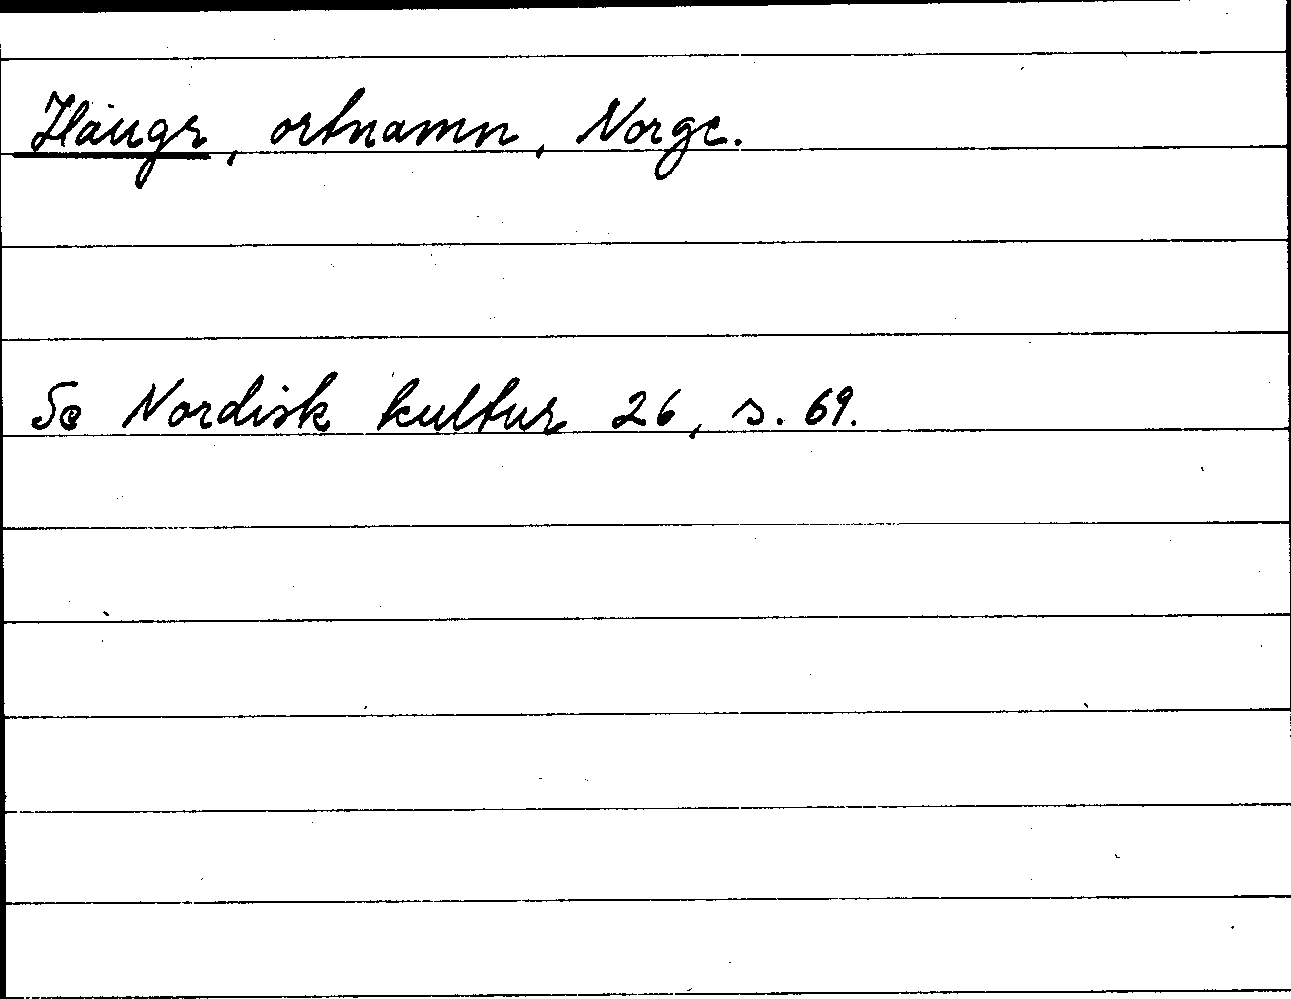 Haugr, ortnamn, Norge.
Se Nordisk kultur 26, s. 69.